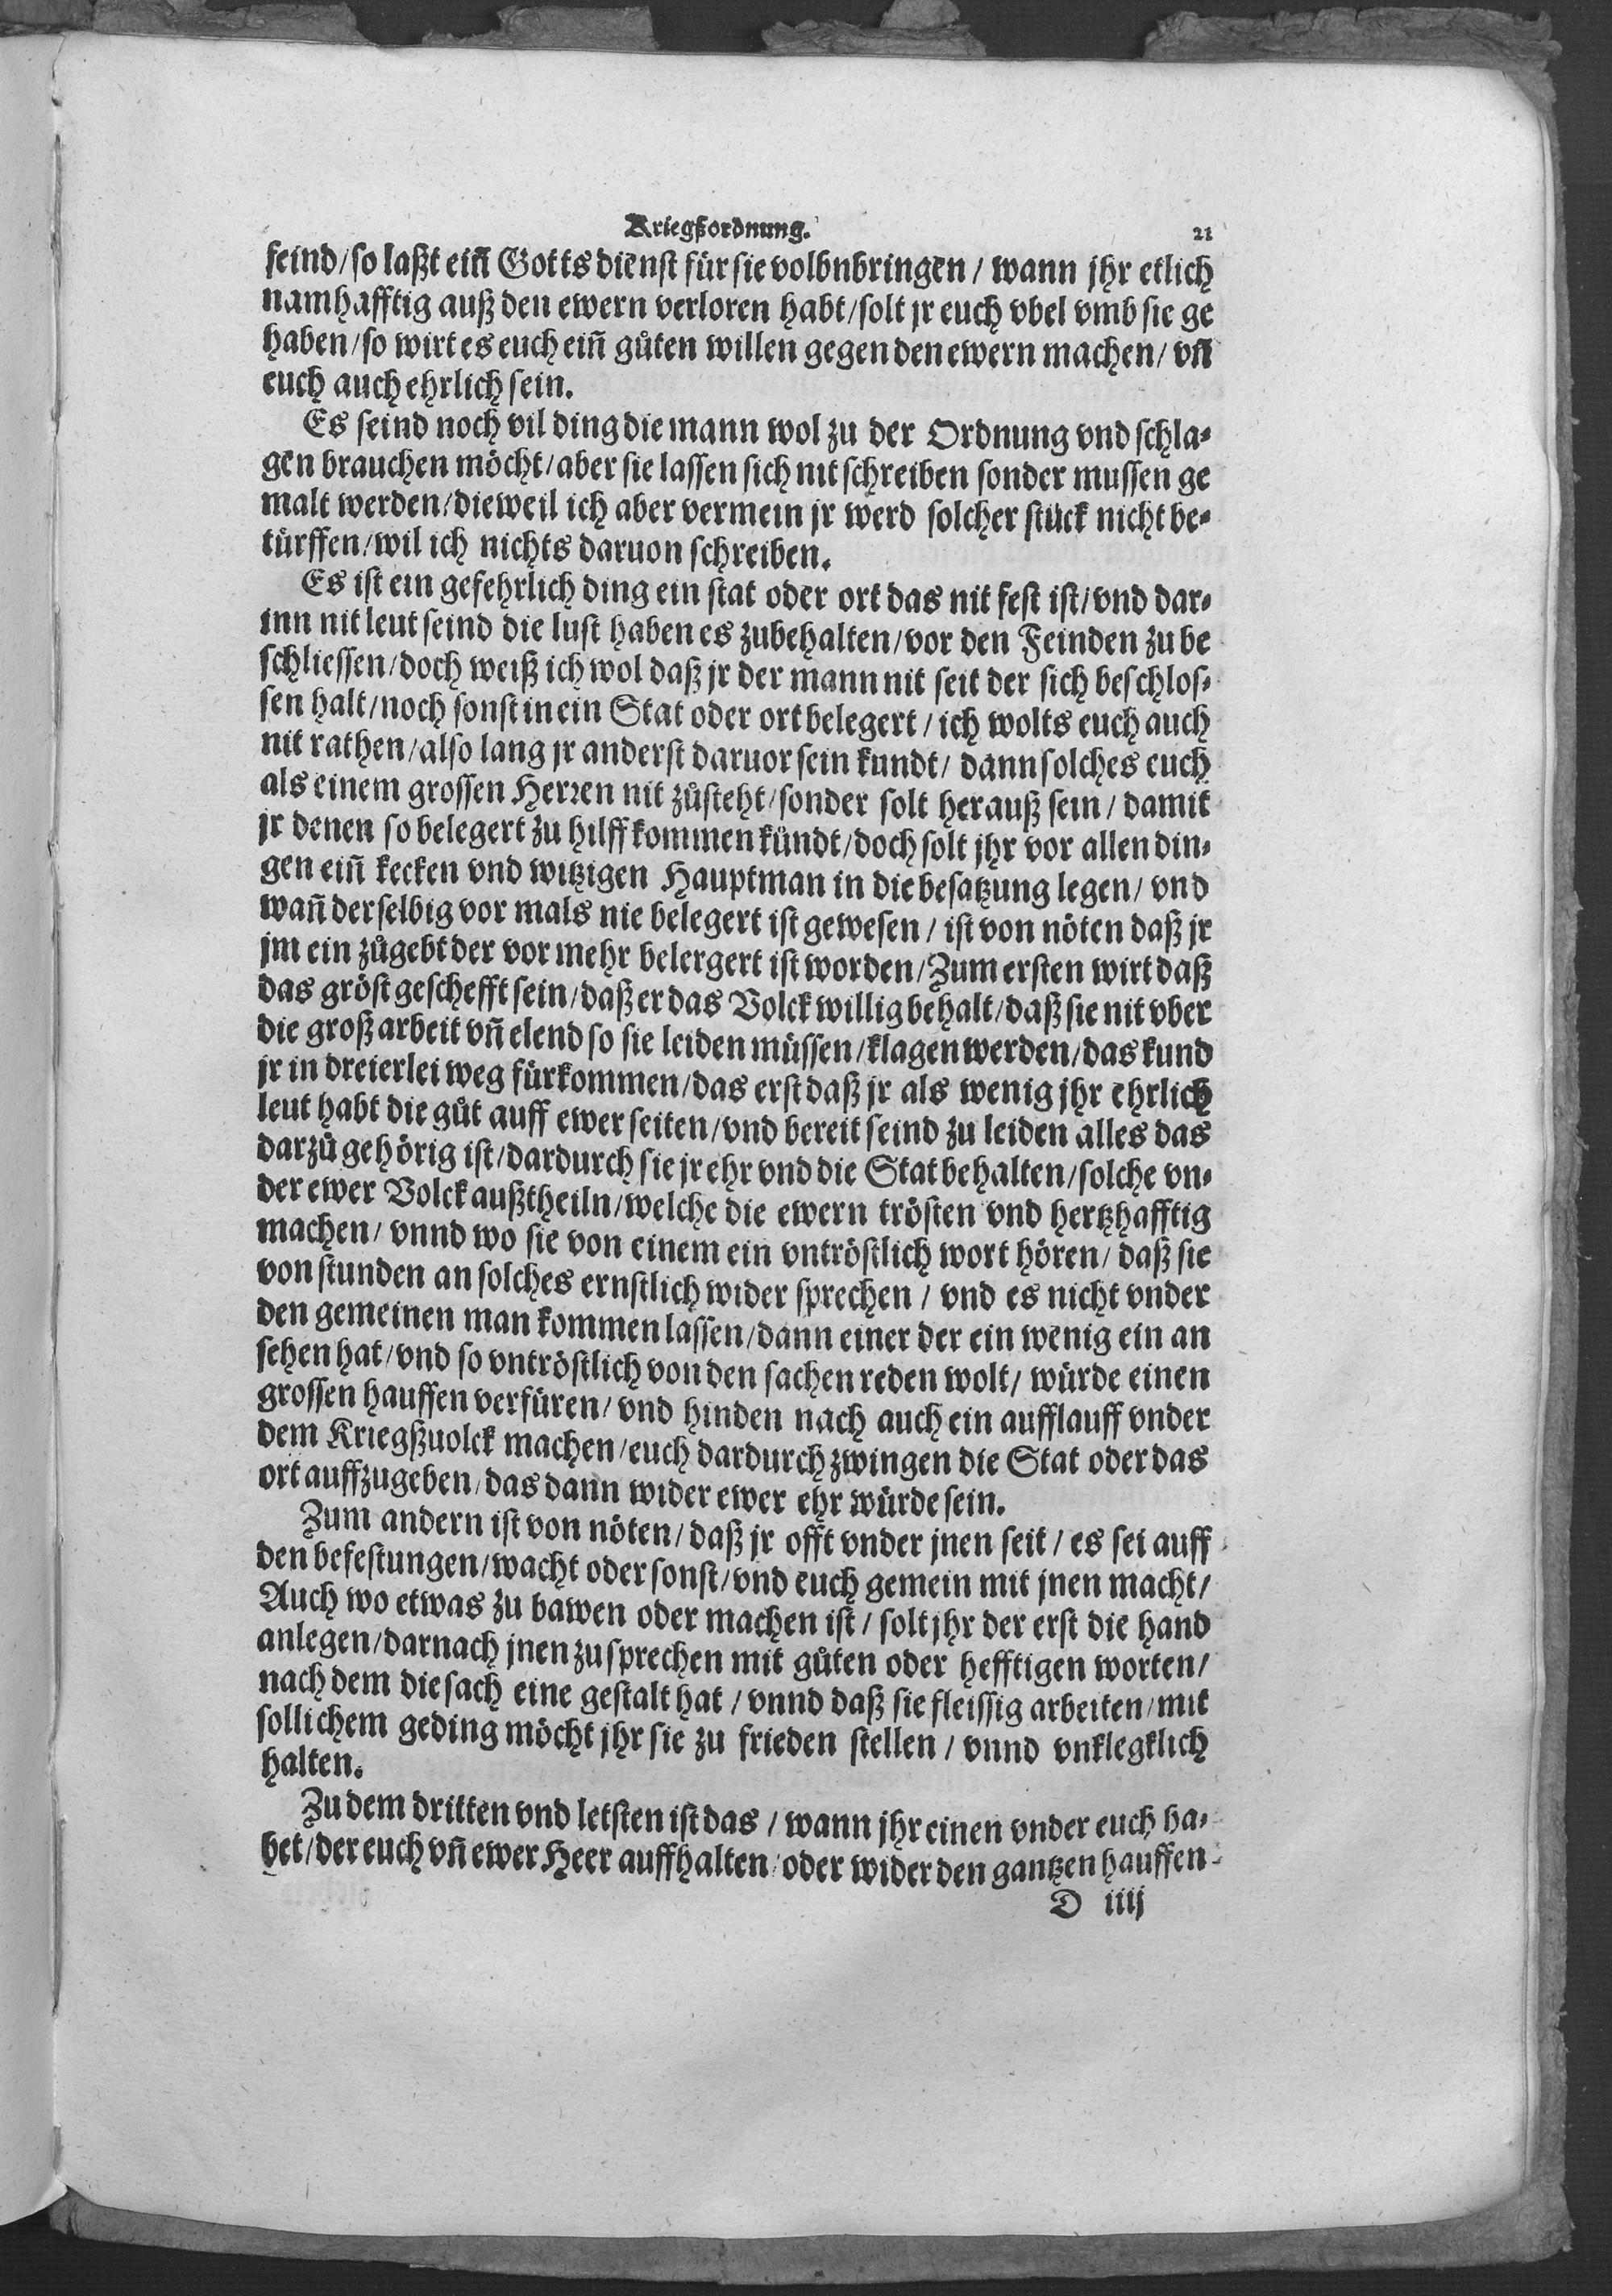 Kriegßordnung. 21
feind/so laßt ein̄ Gottsdienst für sie volbnbringen/ wann jhr etlich
namhafftig auß den ewern verloren habt/solt jr euch vbel vmb sie ge
haben/so wirt es euch ein̄ gůten willen gegen den ewern machen/ vn̄
euch auch ehrlich sein.
Es seind noch vil ding die mann wol zu der Ordnung vnd schla⸗
gen brauchen möcht/aber sie lassen sich nit schreiben sonder mussen ge
malt werden/dieweil ich aber vermein jr werd solcher stück nicht be⸗
türffen/wil ich nichts daruon schreiben.
Es ist ein gefehrlich ding ein stat oder ort das nit fest ist/vnd dar⸗
inn nit leut seind die lust haben es zubehalten/vor den Feinden zu be
schliessen/doch weiß ich wol daß jr der mann nit seit der sich beschlos⸗
sen halt/noch sonst in ein Stat oder ort belegert/ich wolts euch auch
nit rathen/also lang jr anderst daruor sein kundt/ dann solches euch
als einem grossen Herren nit zůsteht/sonder solt herauß sein/ damit
jr denen so belegert zu hilff kommen kündt/doch solt jhr vor allen din⸗
gen ein̄ kecken vnd witzigen Hauptman in die besatzung legen/ vnd
wan̄ derselbig vor mals nie belegert ist gewesen/ ist von nöten daß jr
jm ein zůgebt der vor mehr belergert ist worden/Zum ersten wirt daß
das gröst geschefft sein/daß er das Volck willig behalt/daß sie nit vber
die groß arbeit vn̄ elend so sie leiden müssen/klagen werden/das kund
jr in dreierlei weg fürkommen/das erst daß jr als wenig jhr ehrlich
leut habt die gůt auff ewer seiten/vnd bereit seind zu leiden alles das
darzů gehörig ist/dardurch sie jr ehr vnd die Stat behalten/solche vn⸗
der ewer Volck außtheiln/welche die ewern trösten vnd hertzhafftig
machen/ vnnd wo sie von einem ein vntröstlich wort hören/ daß sie
von stunden an solches ernstlich wider sprechen/ vnd es nicht vnder
den gemeinen man kommen lassen/dann einer der ein wenig ein an
sehen hat/vnd so vntröstlich von den sachen reden wolt/ würde einen
grossen hauffen verfüren/ vnd hinden nach auch ein aufflauff vnder
dem Kriegßuolck machen/euch dardurch zwingen die Stat oder das
ort auffzugeben/das dann wider ewer ehr würde sein.
Zum andern ist von nöten/daß jr offt vnder jnen seit/ es sei auff
den befestungen/wacht oder sonst/vnd euch gemein mit jnen macht/
Auch wo etwas zu bawen oder machen ist/ solt jhr der erst die hand
anlegen/darnach jnen zusprechen mit gůten oder hefftigen worten/
nach dem die sach eine gestalt hat/vnnd daß sie fleissig arbeiten/mit
sollichem geding möcht jhr sie zu frieden stellen/ vnnd vnklegklich
halten.
Zu dem dritten vnd letsten ist das/ wann jhr einen vnder euch ha⸗
bet/der euch vn̄ ewer Heer auffhalten/oder wider den gantzen hauffen
D iiij